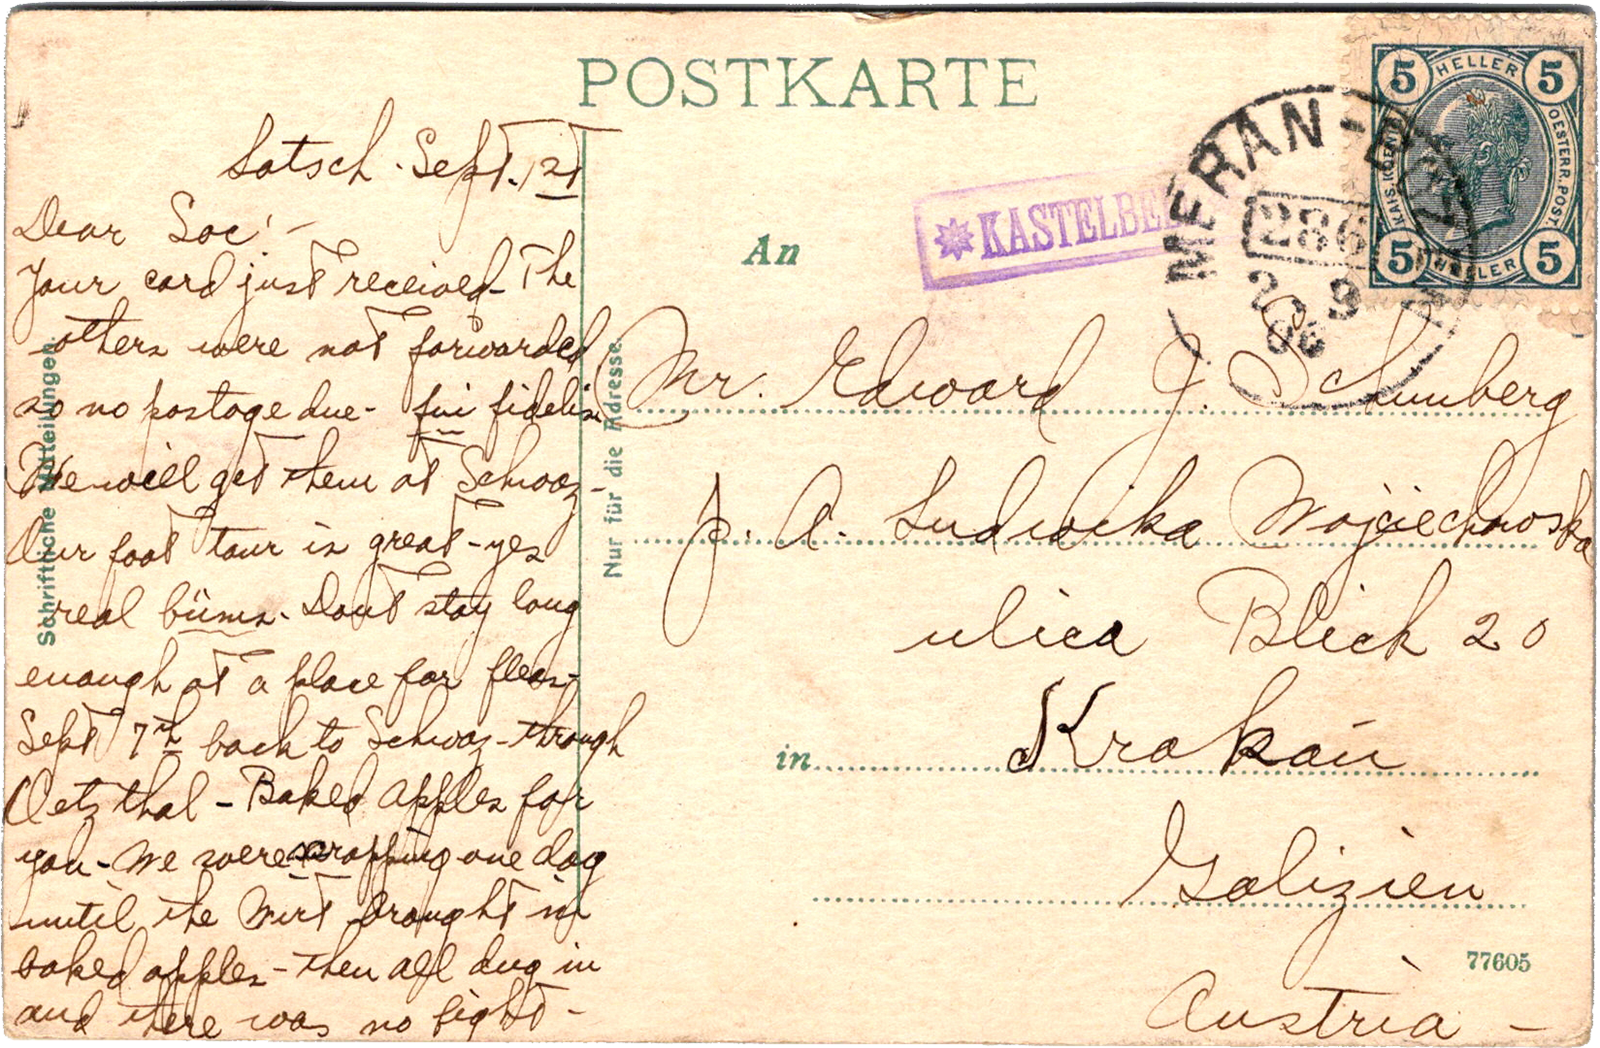 POSTKARTE
Latsch. Sept. 12th
Dear Soc! -
Your card just received - The
others were not forwarded
so no postage due - fui fidelis
We will get them at Schwaz -
Our foot tour is great - yes
real büms. Dont stay long
enough at a place for fleas -
Sept 7th back to Schwaz - through
Oetz thal - Baked apples for
you - We were scrapping one day
until the Wirt brought in
baked apples - then all dug in
and there was no fight -
Schriftliche Mitteilungen.
Nur für die Adresse.
KASTELBE
MERAN -
286
20 9
06
5 HELLER 5
KAIS. KOENIGL.
OESTERR. POST.
5 HELLER 5
An
Mr. Edward J. Schumberg
p. A. Ludwika Wojciechowska
ulica Blich 20
in Krakau
Galizien
77605
Austria -